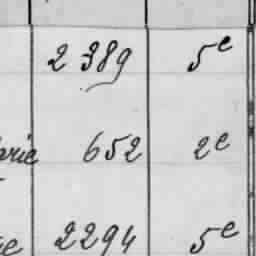 2 389 5e
652 2e
2294 5e